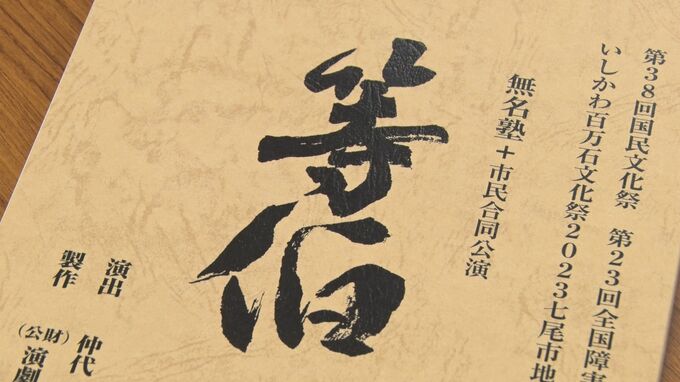 第38回国民文化祭 第23回全国障害
いしかわ百万石文化祭2023七尾市地
無名塾+市民合同公演
等伯
演出 仲代
製作 (公財)演劇